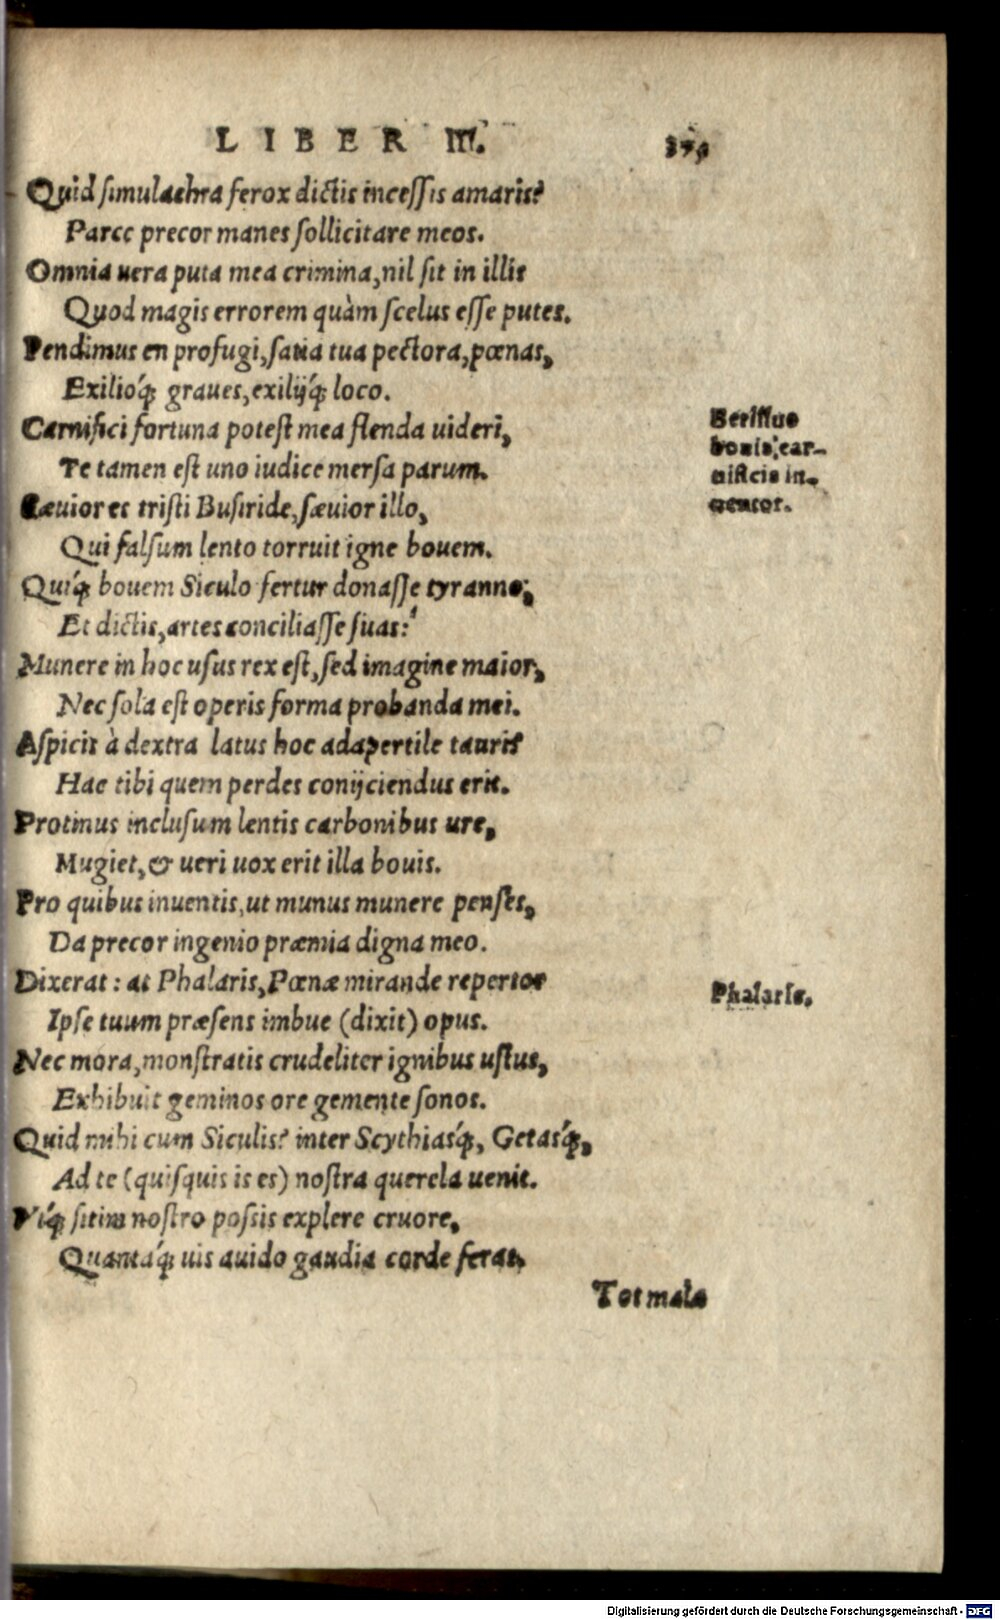 LIBER III.
Quid simulachra ferox dictis incessis amaris?
Parce precor manes sollicitare meos.
Omnia uera puta mea crimina, nil sit in illis
Quod magis errorem quàm scelus esse putes.
Pendimus en profugi, satia tua pectora, pœnas,
Exilioq́; graues, exilijq́; loco.
Carnifici fortuna potest mea flenda uideri,
Te tamen est uno iudice mersa parum.
Sæuior es tristi Busiride, sæuior illo,
Qui falsum lento torruit igne bouem.
Quiq́; bouem Siculo fertur donasse tyranno;
Et dictis, artes conciliasse suas:
Munere in hoc usus rex est, sed imagine maior,
Nec sola est operis forma probanda mei.
Aspicis à dextra latus hoc adapertile tauri?
Hac tibi quem perdes conijciendus erit.
Protinus inclusum lentis carbonibus ure,
Mugiet, & ueri uox erit illa bouis.
Pro quibus inuentis, ut munus munere penses,
Da precor ingenio præmia digna meo.
Dixerat: at Phalaris, Pœnæ mirande repertor
Ipse tuum præsens imbue (dixit) opus.
Nec mora, monstratis crudeliter ignibus ustus,
Exhibuit geminos ore gemente sonos.
Quid mihi cum Siculis? inter Scythiasq́;, Getasq́;,
Ad te (quisquis is es) nostra querela uenit.
Vtq́; sitim nostro possis explere cruore,
Quantaq́; uis auido gaudia corde feras,
Tot mala
bouis, car-
nificis in-
uentor.
Phalaris.
Digitalisierung gefördert durch die Deutsche Forschungsgemeinschaft - DFG